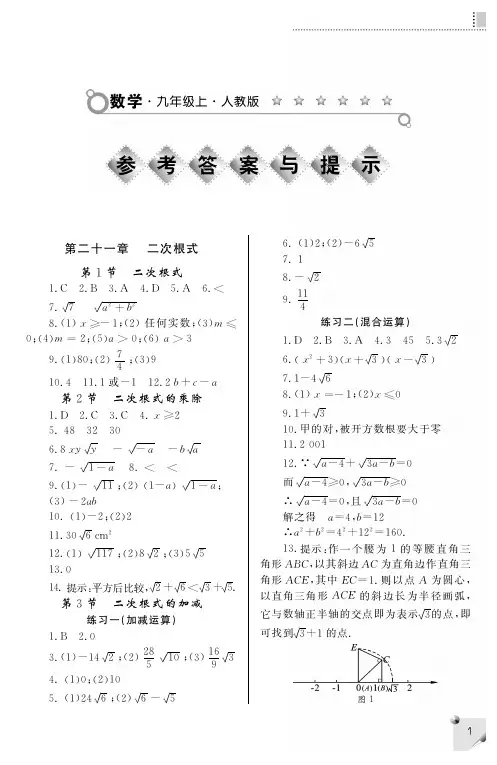 数学·九年级上·人教版 ☆ ☆ ☆ ☆ ☆ ☆
参考答案与提示
第二十一章 二次根式
第1节 二次根式
1.C 2.B 3.A 4.D 5.A 6.<
7. √7 √(a²+b²)
8.(1) x≥-1;(2) 任何实数;(3)m≤
0;(4)m=2;(5)a>0;(6) a>3
9.(1)80;(2) 7/4;(3)9
10.4 11.1或-1 12.2b+c-a
第2节 二次根式的乘除
1.D 2.C 3.C 4. x≥2
5. 48 32 30
6.8xy√y -√(-a) -b√a
7. -√(1-a) 8. < <
9.(1)-√11;(2) (1-a)√(1-a);
(3)-2ab
10. (1)-2;(2)2
11.30√6 cm²
12.(1) √117;(2)8√2;(3)5√5
13.0
14. 提示:平方后比较,√2+√6<√3+√5.
第3节 二次根式的加减
练习一(加减运算)
1.B 2.0
3.(1)-14√2;(2) 28/5 √10;(3) 16/9 √3
4. (1)0;(2)10
5. (1)24√6;(2)√6-√5
6. (1)2;(2)-6√5
7. 1
8.-√2
9. 11/4
练习二(混合运算)
1.D 2.B 3.A 4.3 45 5.3√2
6.(x²+3)(x+√3)(x-√3)
7.1-4√6
8.(1) x=-1;(2)x≤0
9.1+√3
10.甲的对,被开方数根要大于零
11.2 001
12.∵√(a-4)+√(3a-b)=0
而√(a-4)≥0,√(3a-b)≥0
∴√(a-4)=0,且√(3a-b)=0
解之得 a=4,b=12
∴a²+b²=4²+12²=160.
13.提示:作一个腰为1的等腰直角三
角形ABC,以其斜边AC为直角边作直角三
角形ACE,其中EC=1.则以点A为圆心,
以直角三角形ACE的斜边长为半径画弧,
它与数轴正半轴的交点即为表示√3的点,即
可找到√3+1的点.
E
C
-2 -1 0(A)1(B)√3 2
图1
1